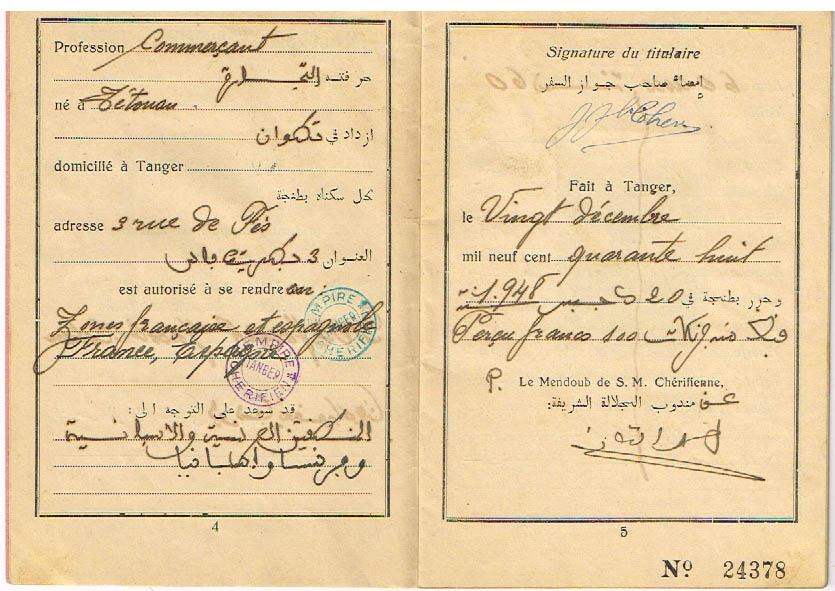 Profession Commerçant
حرفته التجارة
né à Tétouan
ازداد في تطوان
domicilié à Tanger
محل سكناه بطنجة
adresse 3 rue de Fès
العنوان 3 فاس
est autorisé à se rendre en:
Zones française et espagnole
France, Espagne
EMPIRE CHÉRIFIEN TANGER
EMPIRE CHÉRIFIEN TANGER
قد سوعد على التوجه الى:
المنطقتين الفرنسية والاسبانية
وفرنسا واسبانيا
4
Signature du titulaire
إمضاء صاحب جواز السفر
Cohen
Fait à Tanger,
le Vingt décembre
mil neuf cent quarante huit
وحرر بطنجة في 20 دجنبر سنة 1.948
Perçu francs 100
P. Le Mendoub de S. M. Chérifienne,
عن مندوب الجلالة الشريفة:
5
Nº 24378